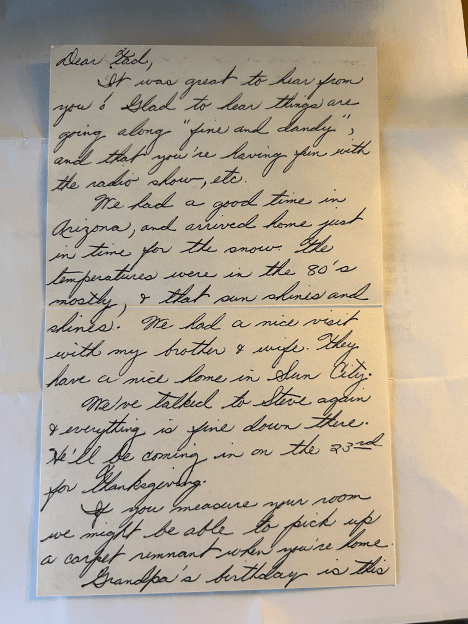 Dear Tad,
It was great to hear from
you & Glad to hear things are
going along "fine and dandy",
and that you're having fun with
the radio show, etc.
We had a good time in
Arizona, and arrived home just
in time for the snow. The
temperatures were in the 80's
mostly, & that sun shines and
shines. We had a nice visit
with my brother & wife. They
have a nice home in Sun City.
We've talked to Steve again
& everything is fine down there.
He'll be coming in on the 23rd
for Thanksgiving.
If you measure your room
we might be able to pick up
a carpet remnant when you're home.
Grandpa's birthday is this